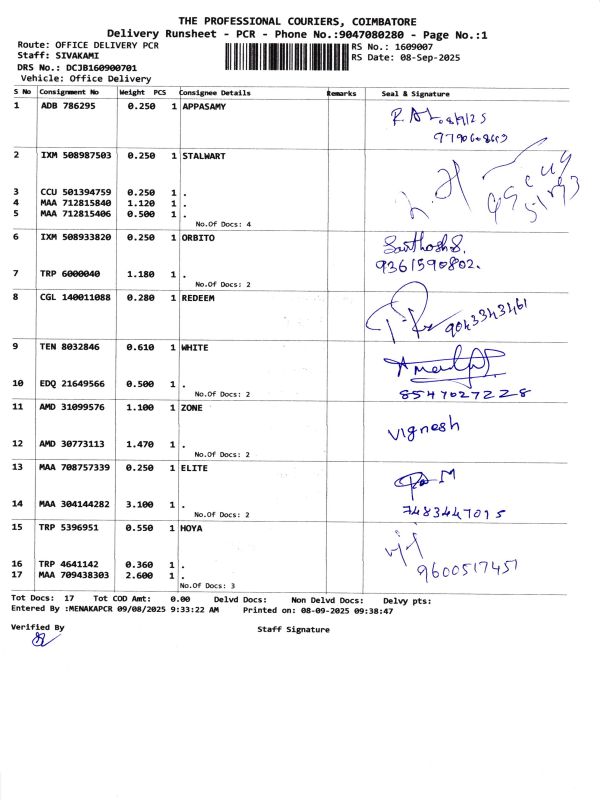 THE PROFESSIONAL COURIERS, COIMBATORE
Delivery Runsheet - PCR - Phone No.:9047080280 - Page No.:1
Route: OFFICE DELIVERY PCR RS No.: 1609007
Staff: SIVAKAMI RS Date: 08-Sep-2025
DRS No.: DCJB160900701
Vehicle: Office Delivery
S No Consignment No Weight PCS Consignee Details Remarks Seal & Signature
1 ADB 786295 0.250 1 APPASAMY
2 IXM 508987503 0.250 1 STALWART
3 CCU 501394759 0.250 1 .
4 MAA 712815840 1.120 1 .
5 MAA 712815406 0.500 1 .
No.Of Docs: 4
6 IXM 508933820 0.250 1 ORBITO
Santhosh S.
9361590802.
7 TRP 6000040 1.180 1 .
No.Of Docs: 2
8 CGL 140011088 0.280 1 REDEEM
9043343461
9 TEN 8032846 0.610 1 WHITE
10 EDQ 21649566 0.500 1 .
No.Of Docs: 2
8547027228
11 AMD 31099576 1.100 1 ZONE
Vignesh
12 AMD 30773113 1.470 1 .
No.Of Docs: 2
13 MAA 708757339 0.250 1 ELITE
14 MAA 304144282 3.100 1 .
No.Of Docs: 2
7483447015
15 TRP 5396951 0.550 1 HOYA
16 TRP 4641142 0.360 1 .
9600517457
17 MAA 709438303 2.600 1 .
No.Of Docs: 3
Tot Docs: 17 Tot COD Amt: 0.00 Delvd Docs: Non Delvd Docs: Delvy pts:
Entered By :MENAKAPCR 09/08/2025 9:33:22 AM Printed on: 08-09-2025 09:38:47
Verified By Staff Signature